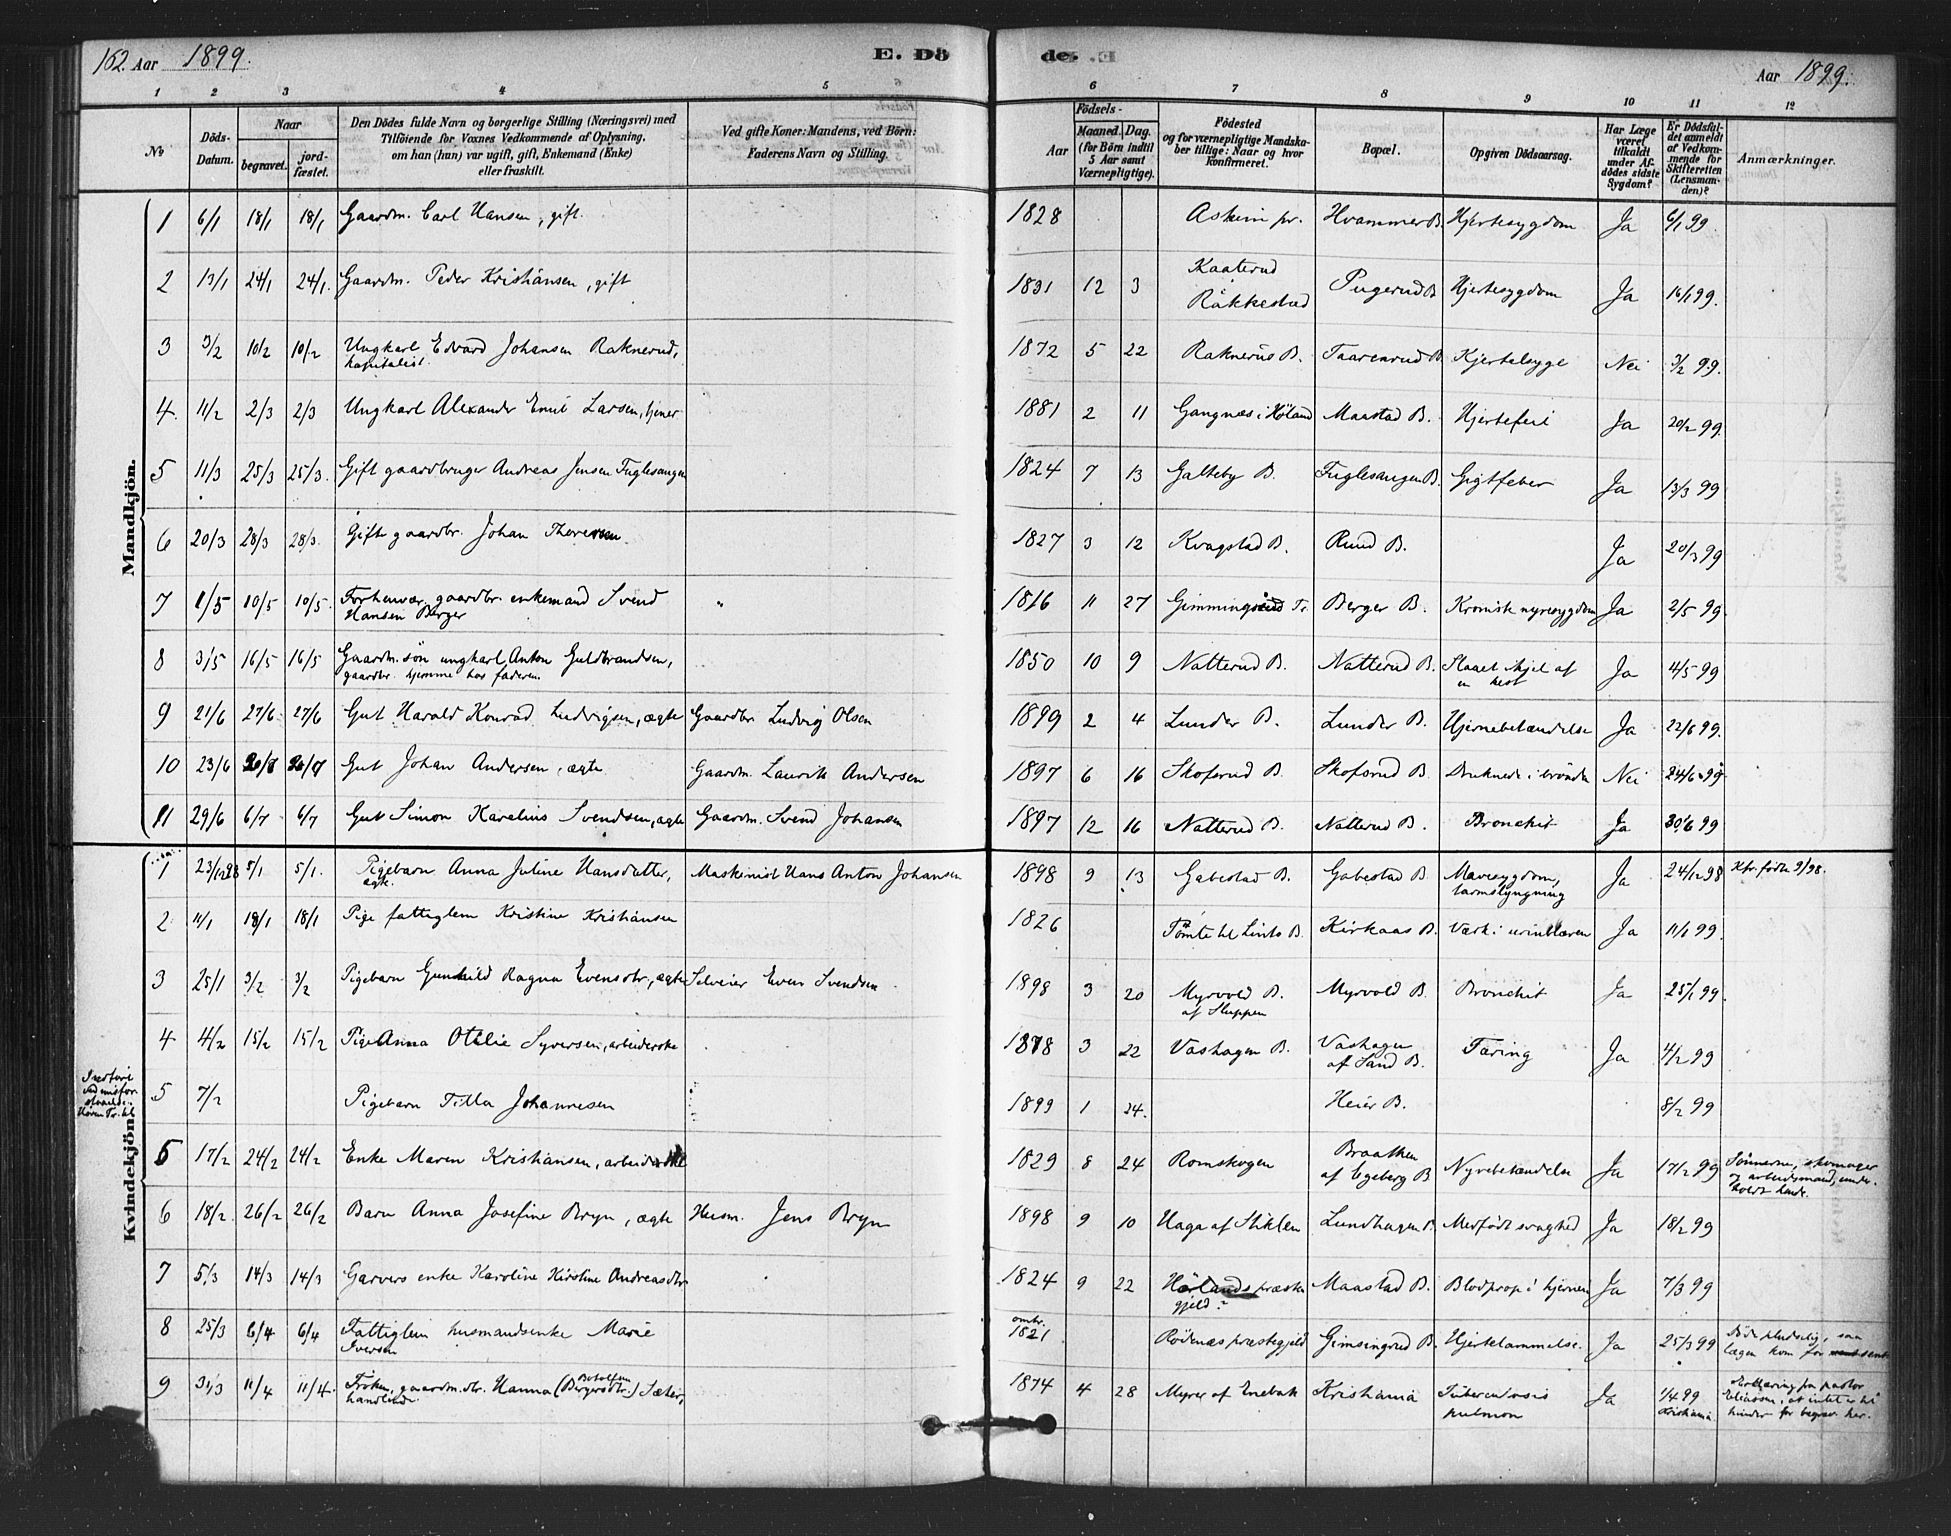 162. Aar 1899. E. Dö de: Aar 1899.
1 2 3 4 5 6 7 8 9 10 11 12
No Döds-Datum. Naar begravet. jord-fæstet. Den Dödes fulde Navn og borgerlige Stilling (Næringsvei) med Tilföiende for Voxnes Vedkommende af Oplysning, om han (hun) var ugift, gift, Enkemand (Enke) eller fraskilt. Ved gifte Koner: Mandens, ved Börn: Faderens Navn og Stilling. Födsels- Aar Maaned. Dag. (for Börn indtil 5 Aar samt Værnepligtige). Födested og for værnepligtige Mandskaber tillige: Naar og hvor konfirmeret. Bopæl. Opgiven Dödsaarsag. Har Læge været tilkaldt under Afdödes sidste Sygdom? Er Dödsfaldet anmeldt af Vedkommende for Skifteretten (Lensmanden)? Anmærkninger.
Mandkjön.
1 6/1 18/1 18/1 Gaardm. Carl Hansen, gift. 1828 Askim pr. Hvammer B. Hjertesygdom Ja 6/1 99.
2 13/1 24/1 24/1. Gaardm. Peder Kristiansen, gift 1831 12 3 Kaaterud Rakkestad Pugerud B Hjertesygdom Ja 16/1 99.
3 3/2 10/2 10/2 Ungkarl Edvard Johansen Raknerud, kapitalist. 1872 5 22 Raknerud B. Taarenrud B Kjertelsyge Nei 3/2 99.
4. 11/2 2/3 2/3 Ungkarl Alexander Emil Larsen, tjener 1881 2 11 Gangnæs i Høland Maastad B. Hjertefeil Ja 20/2 99.
5 11/3 25/3 25/3. Gift gaardbruger Andreas Jensen Fuglesangen 1824 7 13 Galteby B. Fuglesangen B. Gigtfeber Ja 13/3 99
6 20/3 28/3 28/3. Gift gaardbr. Johan Thoresen 1827 3 12 Kvagstad B. Ruud B. Ja 20/3 99
7 1/5 10/5 10/5. Forhenvær. gaardbr. enkemand Svend Hansen Berger " 1816 11 27 Gimmingsrud Tr. Berger B. Kronisk nyresygdom Ja 2/5 99.
8 3/5 16/5 16/5 Gaardm.søn ungkarl Anton Guldbrandsen, gaardbr. hjemme hos faderen. 1850 10 9 Natterud B. Natterud B. Slaaet ihjel af en hest Ja 4/5 99
9 21/6 27/6 27/6 Gut Harald Konrad Ludvigsen, ægte Gaardbr. Ludvig Olsen 1899 2 4 Lunder B. Lunder B. Hjernebetændelse Ja 22/6 99.
10 23/6 Gut Johan Andersen, ægte Gaardm. Laurits Andersen 1897 6 16 Skofsrud B. Skofsrud B. Druknede i brønden Nei 24/6 99
11 29/6 6/7 6/7 Gut Simon Karelius Svendsen, ægte Gaardm. Svend Johansen 1897 12 16 Natterud B. Natterud B. Bronchit Ja 30/6 99
Kvindekjön.
1 23/12 98 5/1 5/1. Pigebarn Anna Juline Hansdatter, ægt. Maskinist Hans Anton Johansen 1898 9 13 Gabestad B. Gabestad B. Mavesygdom, tarmslyngning Ja 24/12 98 Kfr. fødte 9/98.
2 11/1 18/1 18/1 Pige fattiglem Kristine Kristiansen 1826 Tømte Kirkaas B. Værk i urinblæren Ja 11/1 99.
3 25/1 3/2 3/2 Pigebarn Gunhild Ragna Evensdtr, ægte Selveier Even Svendsen 1898 3 20 Myrvold B. af Sluppen Myrvold B. Bronchit Ja 25/1 99.
4 4/2 15/2 15/2 Pige Anna Otilie Syversen, arbeiderske 1878 3 22 Vashagen B. Vashagen af Sand B. Tæring Ja 4/2 99
5 7/2 Pigebarn Tilla Johannesen 1899 1 24. Heier B. 8/2 99
5 17/2 24/2 24/2 Enke Maren Kristiansen, arbeiderske 1829 8 24 Romskogen Braathen af Egeberg B Nyrebetændelse Ja 17/2 99 Sønnerne, skomager og arbeidsmand, underholdt hende.
6 18/2. 26/2 26/2 Barn Anna Josefine Bryn, ægte Husm. Jens Bryn 1898 9 10 Haga af Stiklen Lundhagen B. Medfødt svaghed Ja 18/2 99
7 5/3 14/3 14/3 Garvers enke Karoline Kirstine Andreasdtr 1824 9 22 Hørlands præstegjeld? Maastad B. Blodprop i hjernen Ja 7/3 99
8 25/3 6/4 6/4 Fattiglem husmandsenke Marie Iversen omtr. 1821 Rødenæs præstegjeld Gimsingrud B. Hjertelammelse. Ja 25/3 99 Døde pludselig, saa lægen kom for sent
9 31/3 11/4 11/4. Frøken, gaardm.dtr. Hanna (Bergersdtr.) Sæter, handlende 1874 4 28 Myrer af Enebak Kristiania Tuberculosis pulmon Ja 1/4 99 Kristiania Erklæring fra pastor Eliassen, at intet er til hinder for begrav. her.